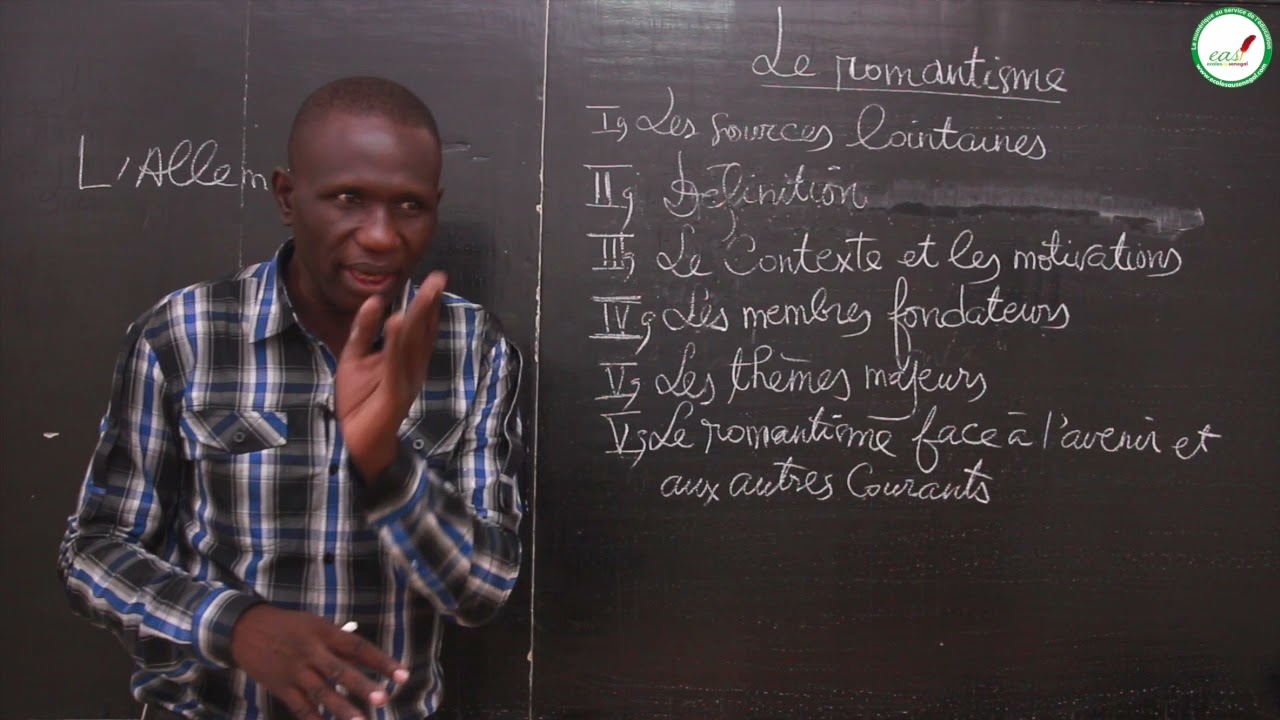 L'Allem
Le romantisme
I, Les sources lointaines
II, Définition
III, Le Contexte et les motivations
IV, Les membres fondateurs
V, Les thèmes majeurs
V, Le romantisme face à l'avenir et
aux autres Courants
Le numérique au service de l'éducation
eas
ecolesausenegal
www.ecolesausenegal.com